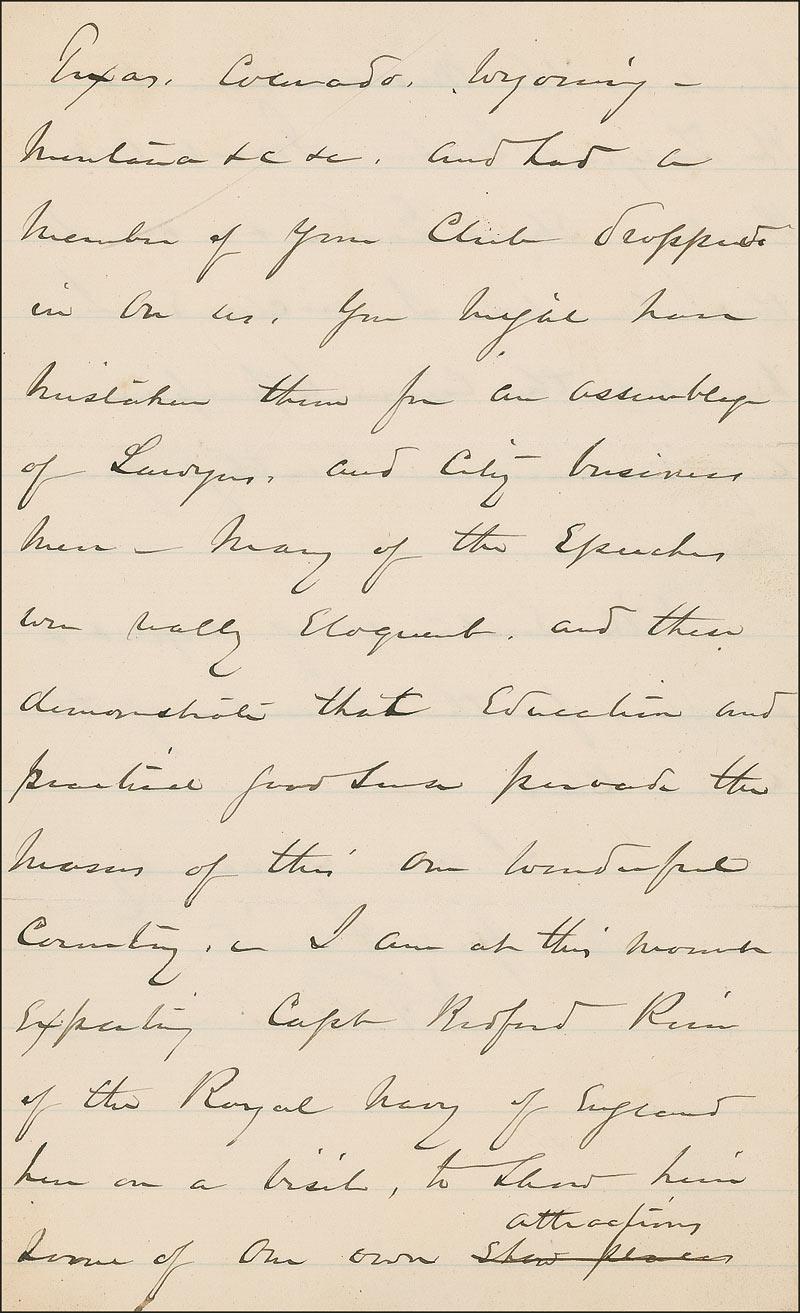 Texas. Colorado. Wyoming –
Montana &c &c. and had a
member of your Club dropped
in on us. You might have
mistaken them for an assemblage
of Lawyers, and City business
men – Many of the Speeches
were really Eloquent. and these
demonstrate that Education and
practical good sense pervade the
masses of this our wonderful
Country. I am at this moment
Expecting Capt Bedford Pim
of the Royal Navy of England
here on a visit, to show him
attractions
some of our own show places